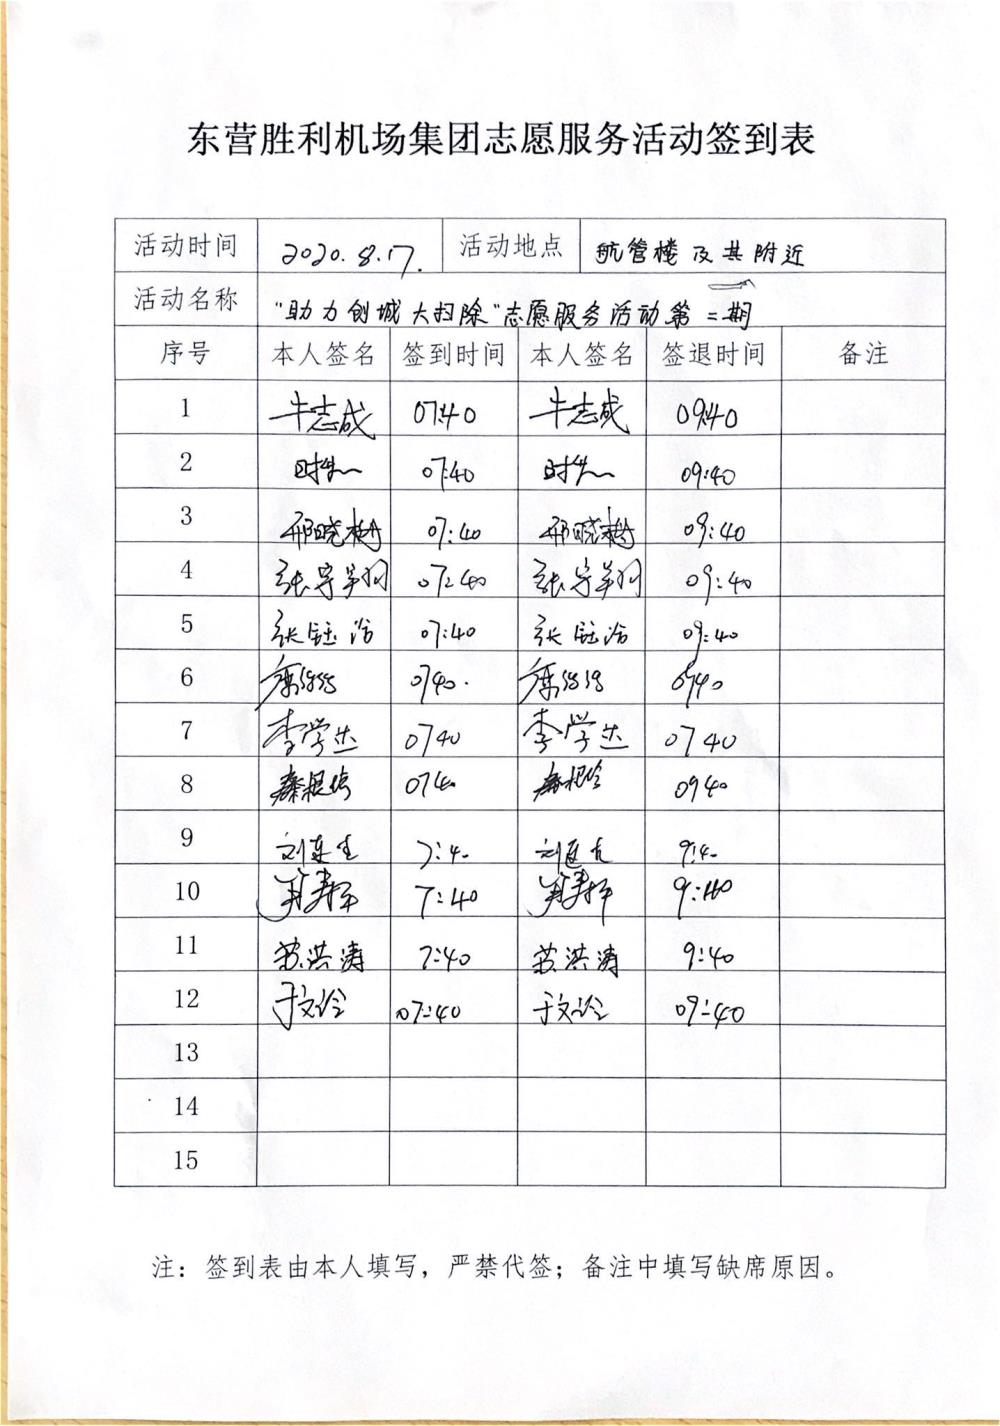 东营胜利机场集团志愿服务活动签到表
活动时间 2020.8.17. 活动地点 航管楼及其附近
活动名称 "助力创城大扫除"志愿服务活动第二期
序号 本人签名 签到时间 本人签名 签退时间 备注
1 牛志成 07:40 牛志成 09:40
2 07:40 09:40
3 邢晓树 07:40 邢晓树 09:40
4 07:40 09:40
5 张钰浩 07:40 张钰浩 09:40
6 0740. 0940
7 李学达 0740 李学达 0740
8 0740 0940
9 7:40 9:40
10 7:40 9:40
11 苏洪涛 7:40 苏洪涛 9:40
12 于文玲 07:40 于文玲 09:40
13
14
15
注：签到表由本人填写，严禁代签；备注中填写缺席原因。